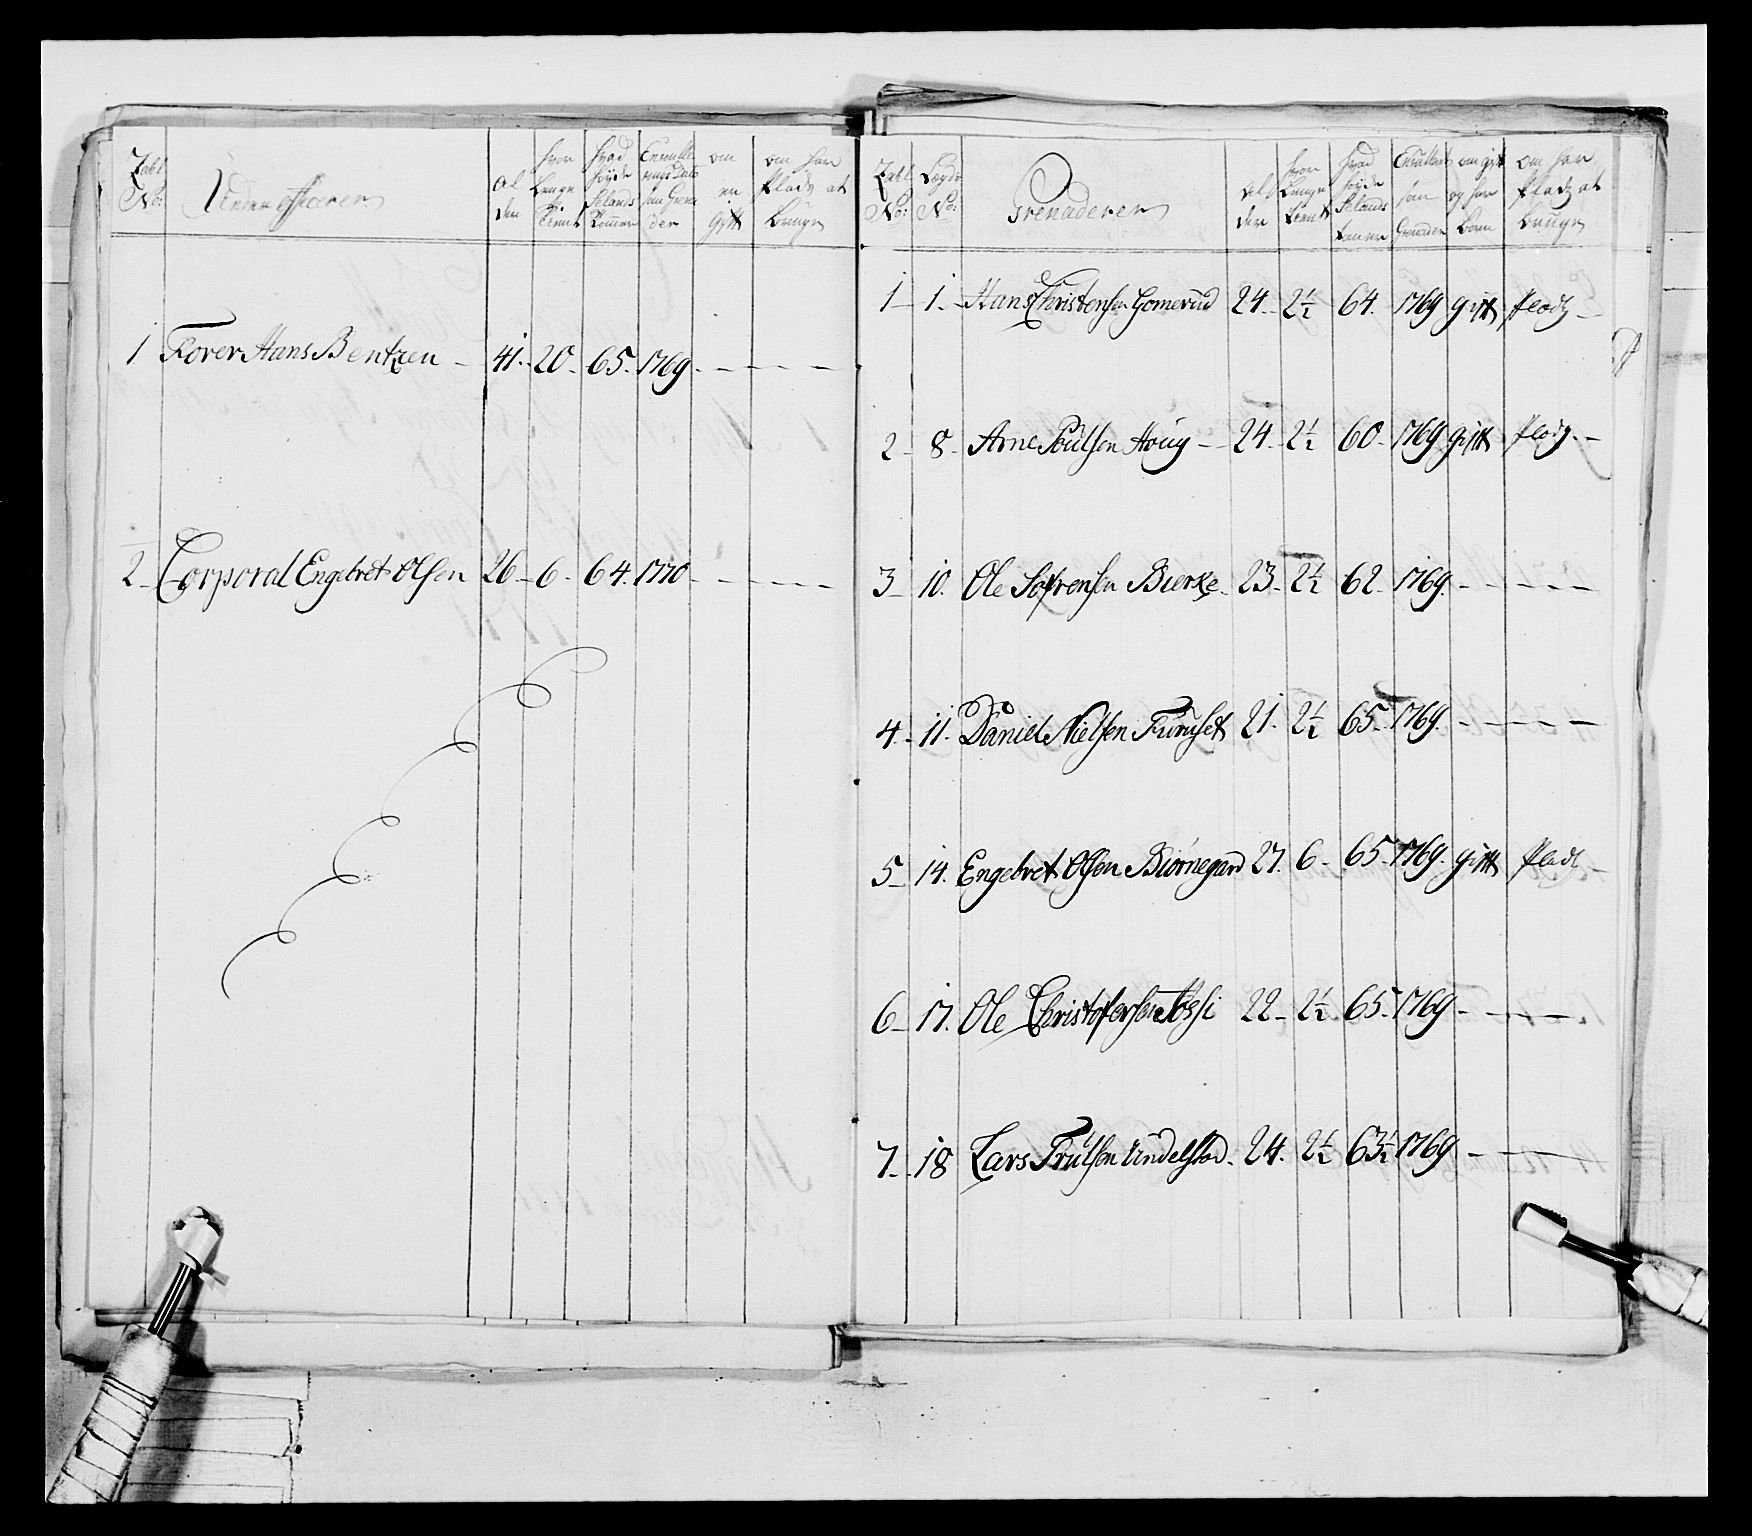 Tabl No: Under officerer al der hvor Lenge tient hvad høyde Selands Tommer om en gift om har Plads at bruge
1 Forer Hans Bentzen - 41. 20 - 65. 1769. - - - -
2 - Corporal Engebret Olsen 26 - 6 - 64. 1770 - - - - -
Tabl No: Lægds No: Grenaderer al der hvor Lenge tient hvad høyde Selands tommer som Grenader om gift og har børn om har Pladz at bruge
1 - 1. - Hans Christensen Gomerud 24. - 2½ 64. 1769 gift Pladz -
2 - 8. Arne Poulsen Houg - 24. - 2½ 60 - 1769 gift Pladz. -
3 - 10. Ole Sofrensen Bierke - 23 - 2½ 62 - 1769. - - - - -
4. - 11. Daniel Nielsen Furuset 21. 2½ 65 - 1769. - - - -
5 - 14. Engebret Olsen Biørnegard 27. 6 - 65 - 1769. gift Pladz
6 - 17. Ole Christofersen 22 - 2½ 65 - 1769 - - - -
7. - 18 Lars Trulsen Undelstad. 24. 2½ 63½ 1769 - -